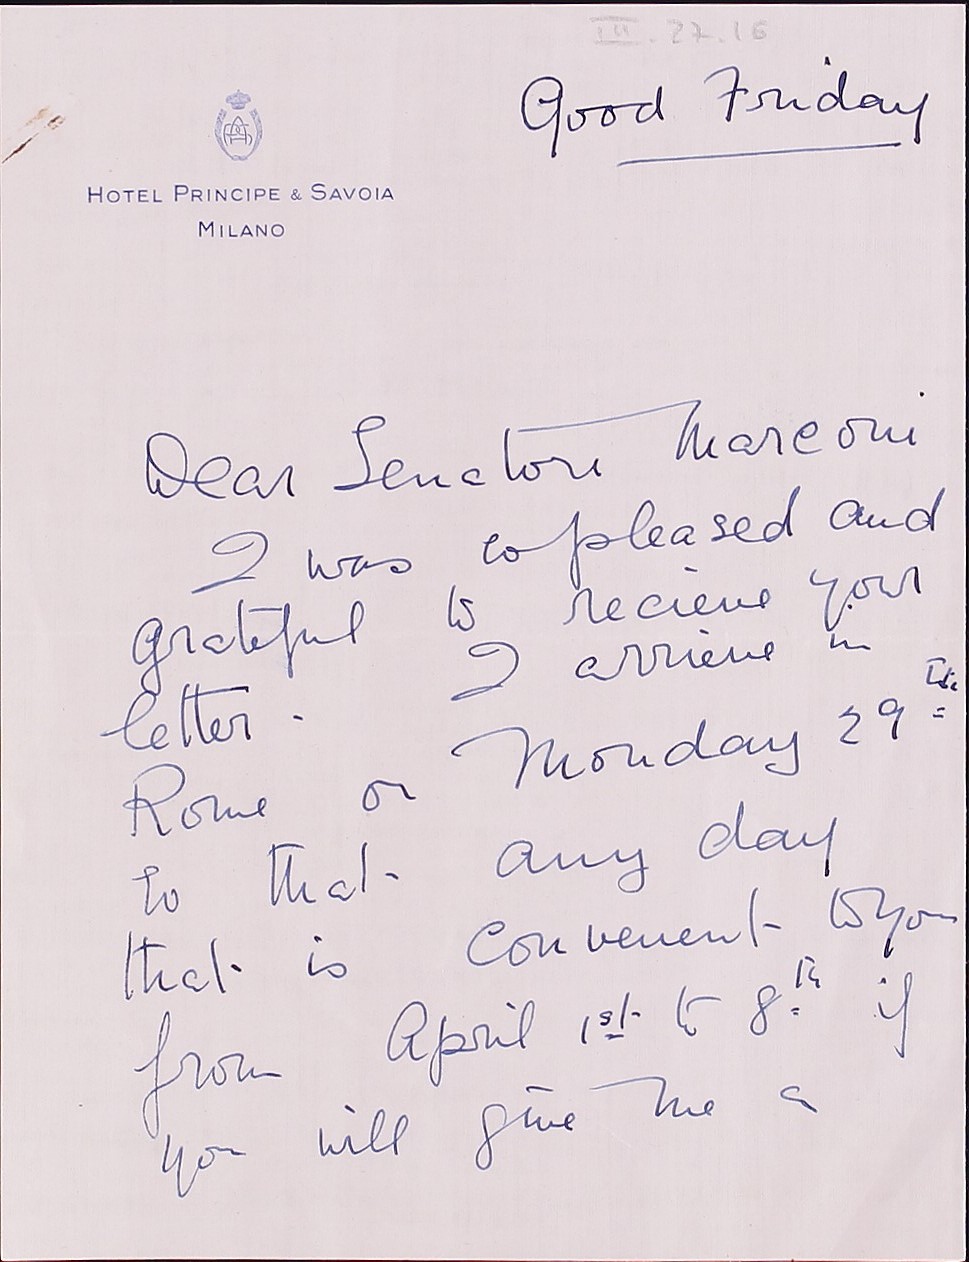 III.27.16
Good Friday
HOTEL PRINCIPE & SAVOIA
MILANO
Dear Senatori Marconi
I was so pleased and
grateful to recieve your
letter. I arrieve in
Rome on Monday 29th
so that any day
that is convenent to you
from April 1st to 8th if
you will give me a